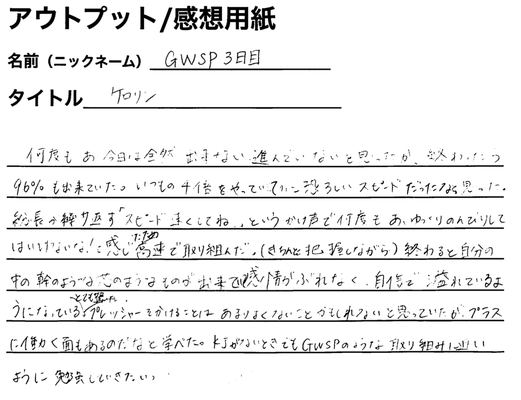 アウトプット/感想用紙
名前（ニックネーム） GWSP 3日目
タイトル ケロリン
何度もあ 今日は全然 出来ない進んでいないと思ったが、終わったら
96%も出来ていた。いつもの4倍をやっていて恐ろしいスピードだったなと思った。
が繰り返す「スピード速くしてね」というかけ声で何度も あ、ゆっくりのんびりして
はいけないな!と感じたため高速で取り組んだ。(きちんと把握しながら) 終わると自分の
木の幹のような芯のようなものが出来て感情がぶれなく、自信で溢れているよ
うになっているとも思った。プレッシャーをかけることはあまりよくないことかもしれないと思っていたが、プラス
に働く面もあるのだなと学べた。 がないときでもGWSPのような取り組みに近い
ように勉強していきたい。